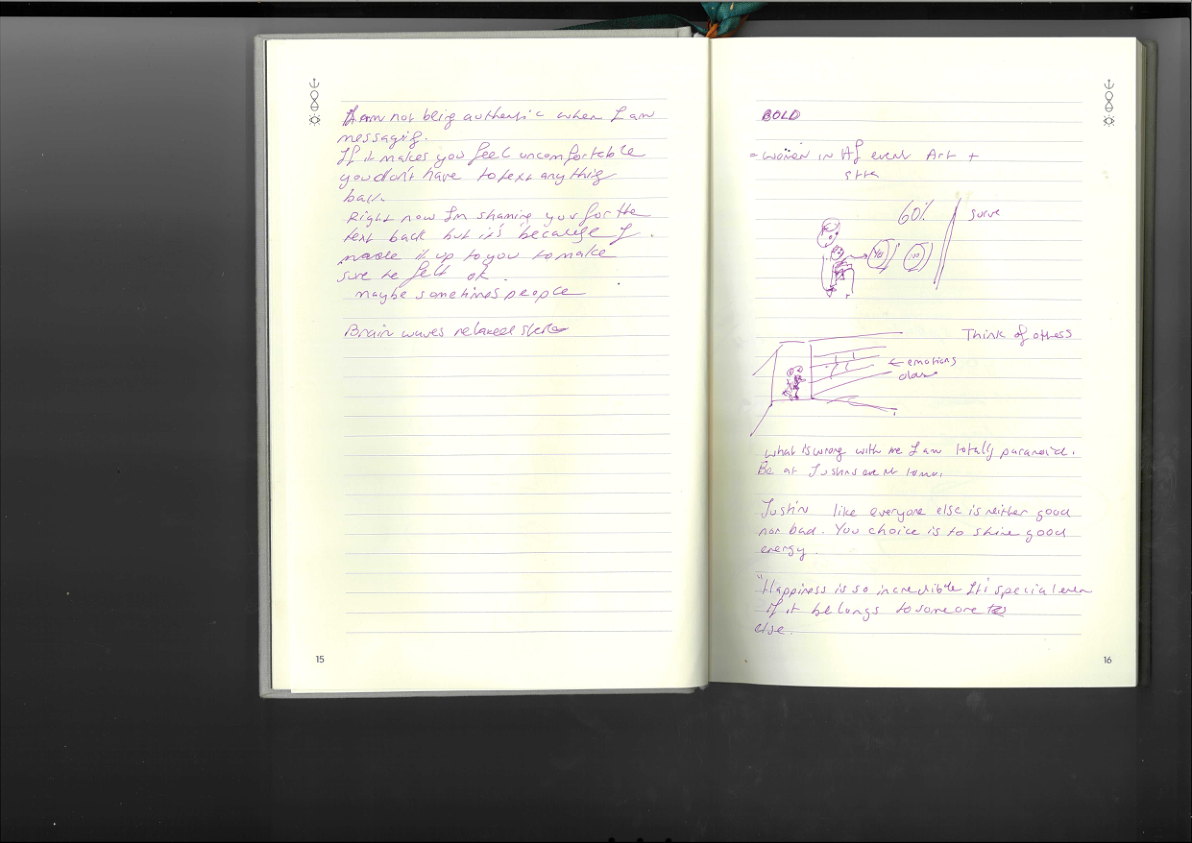 I am not being authentic when I am
messagig.
If it makes you feel uncomfortable
you don't have to text anythig
bac.
Right now I'm shaming you for the
text back but it's because I.
made it up to you to make
sure he felt ok.
maybe sometimes people
Brain waves relaxed state
15
BOLD
- women in event Art +
60%
Think of others
← emotions
what is wrong with me I am totally paranoid.
Be at Justins
Justin like everyone else is neither good
nor bad. You choice is to shine good
energy.
"Happiness is so incredible Its special even
if it belongs to someone
else.
16